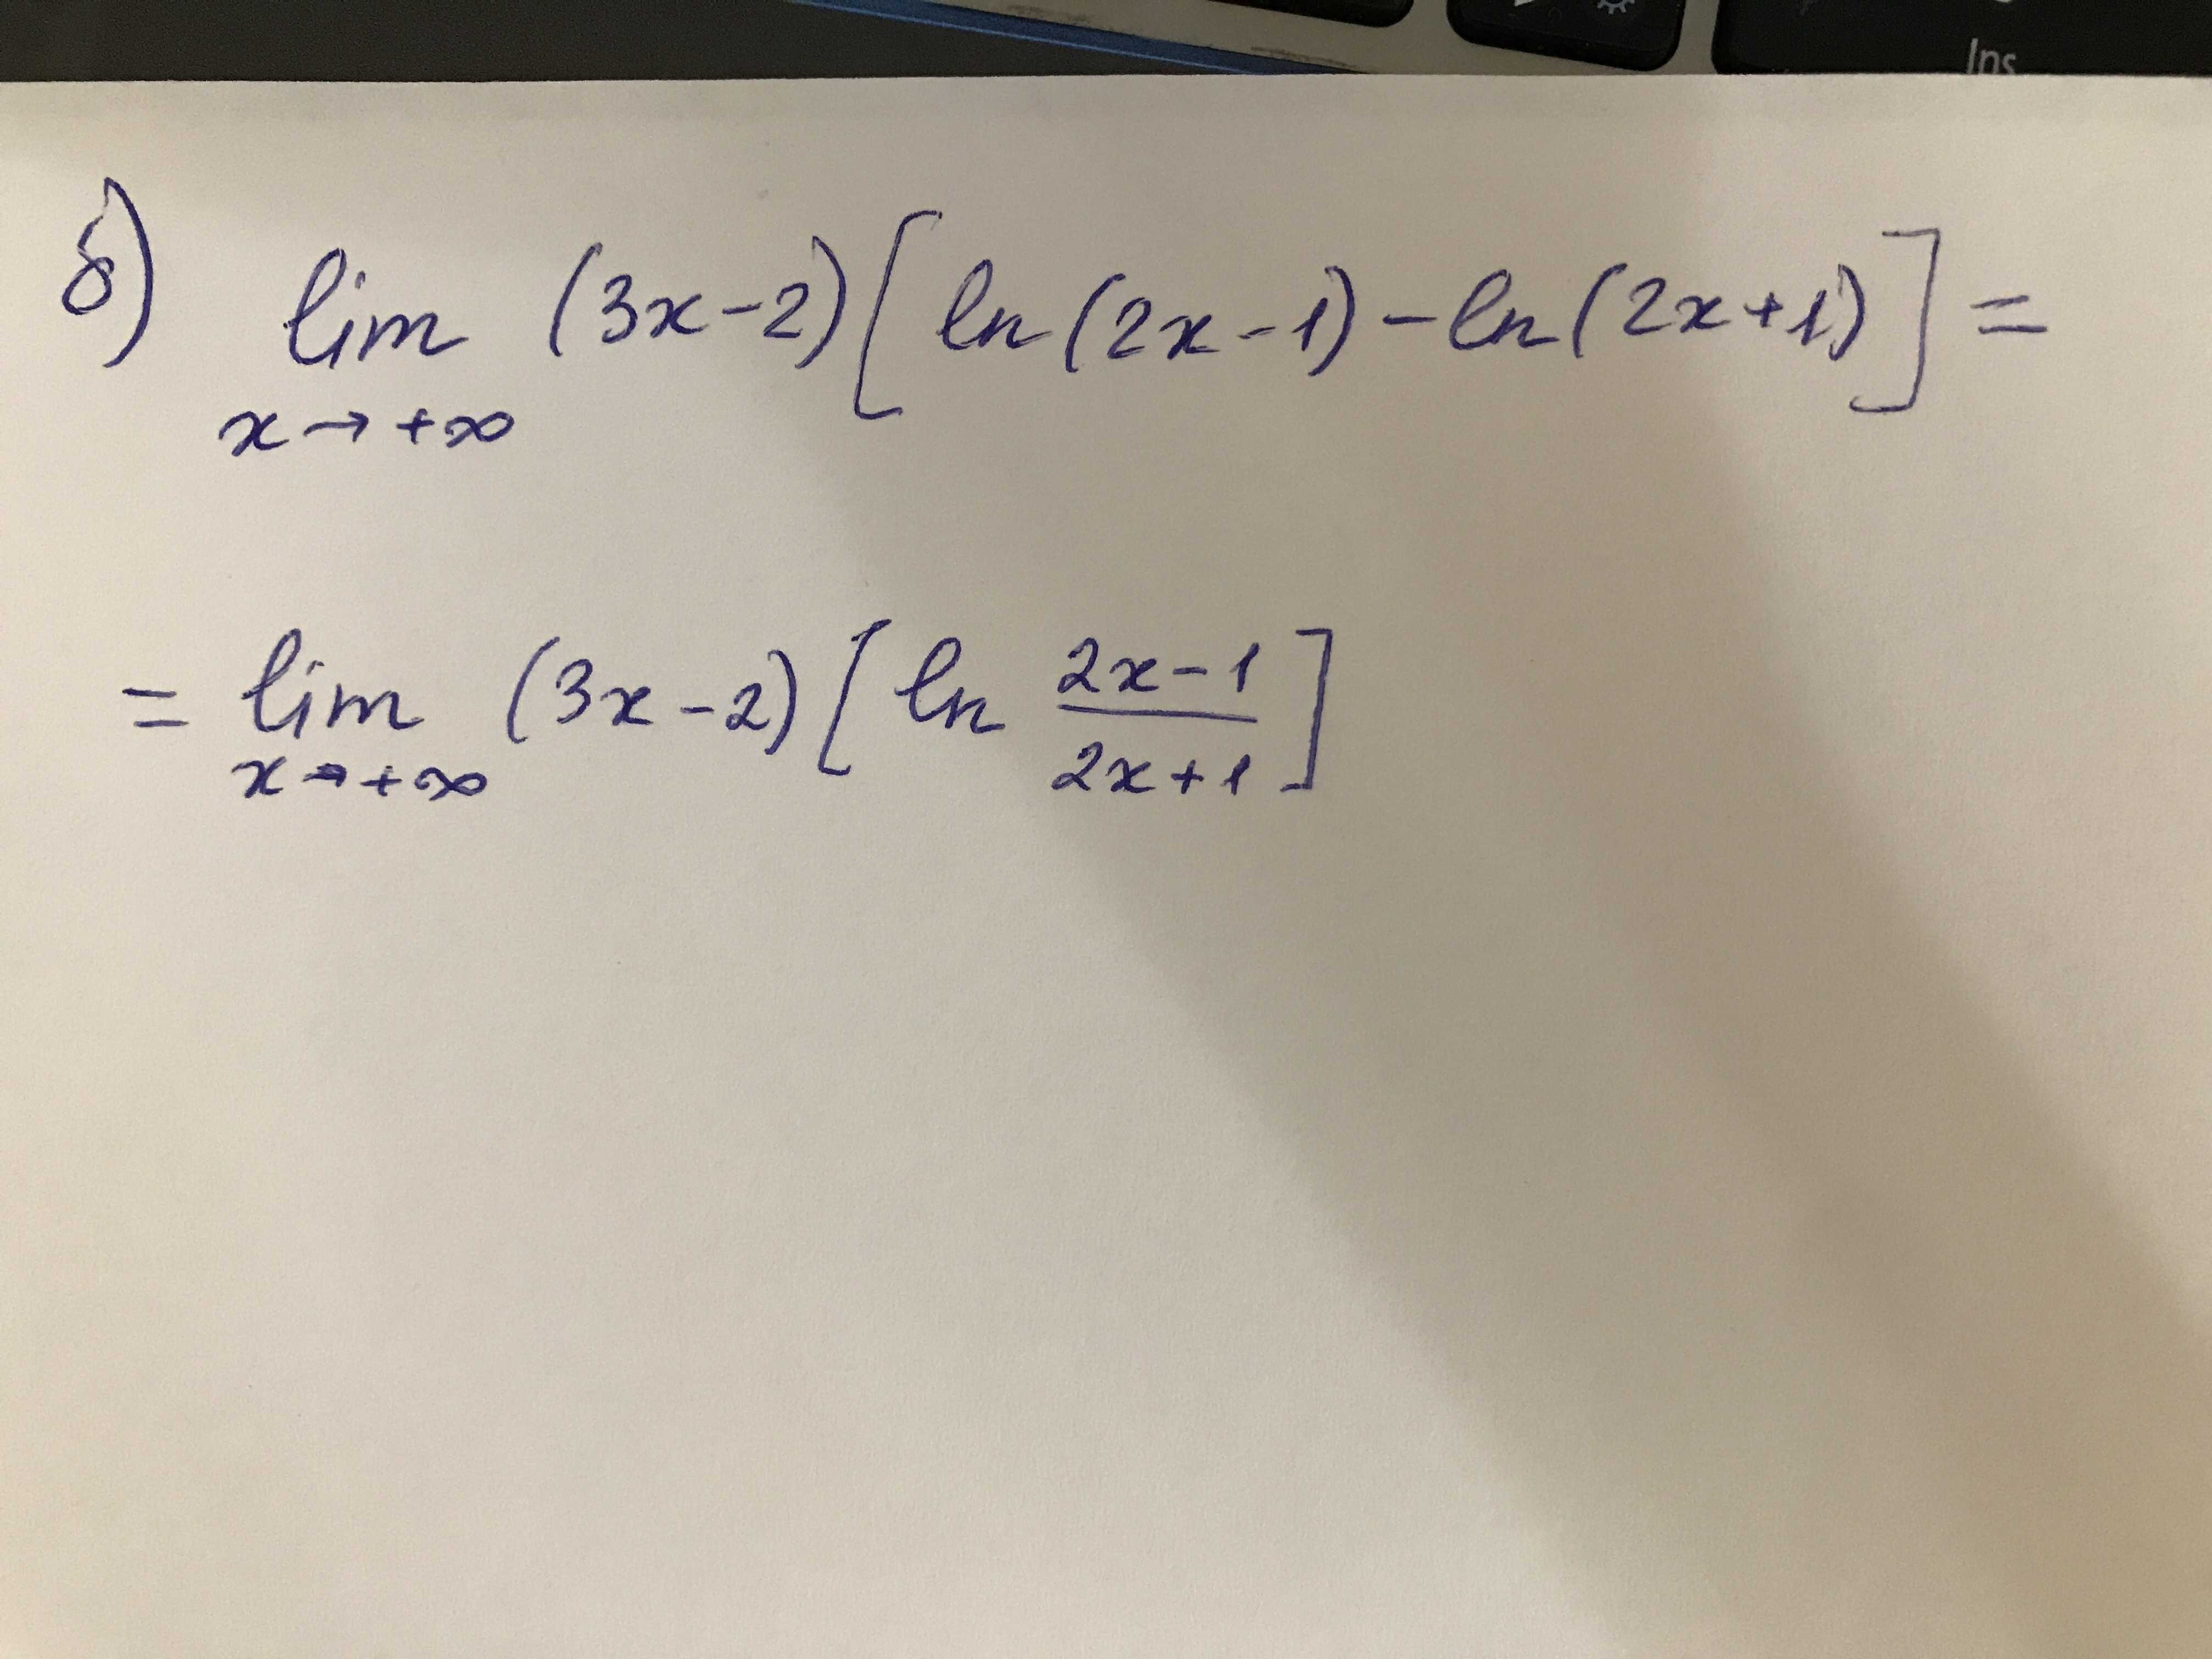 Ins
б) lim (3x-2)[ln(2x-1)-ln(2x+1)]=
x→+∞
= lim (3x-2)[ln (2x-1)/(2x+1)]
x→+∞